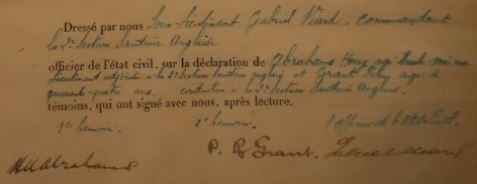 Dressé par nous Sous-Lieutenant Gabriel Viard, commandant
la 2e Section Sanitaire Anglaise
officier de l'état civil, sur la déclaration de Abrahams agé
Lieutenant adjoint à la 2e Section Sanitaire anglaise et Grant agé de
quarante-quatre ans, conducteur à la 2e Section Sanitaire Anglaise.
témoins, qui ont signé avec nous, après lecture.
1er témoin. 2e témoin. l'officier de l'état Civil.
Abrahams P. Grant Viard